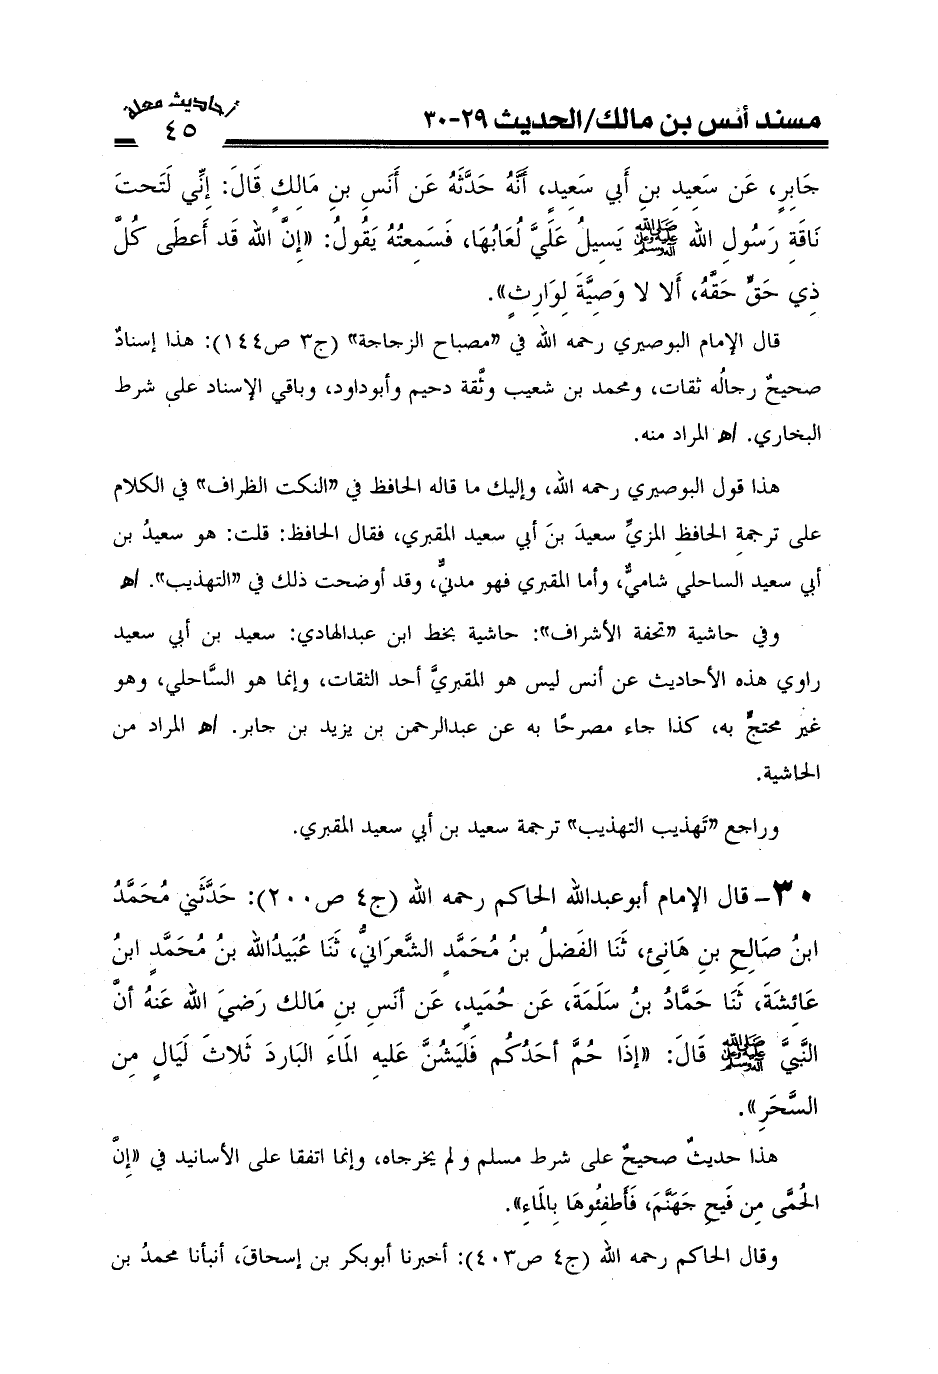 مسند أنس بن مالك/الحديث ٢٩-٣٠
أحاديث معلة
٤٥
جَابِرٍ، عَن سَعِيدِ بنِ أَبِي سَعِيدٍ، أَنَّهُ حَدَّثَهُ عَن أَنَسِ بنِ مَالِكٍ قَالَ: إِنِّي لَتَحتَ
نَاقَةِ رَسُولِ الله ﷺ يَسِيلُ عَلَيَّ لُعَابُهَا، فَسَمِعتُهُ يَقُولُ: «إِنَّ الله قَد أَعطَى كُلَّ
ذِي حَقٍّ حَقَّهُ، أَلا لا وَصِيَّةَ لِوَارِثٍ».
قال الإمام البوصيري رحمه الله في "مصباح الزجاجة" (ج٣ ص١٤٤): هذا إسنادٌ
صحيحٌ رجالُه ثقات، ومحمد بن شعيب وثَّقة دحيم وأبوداود، وباقي الإسناد على شرط
البخاري. اﻫ المراد منه.
هذا قول البوصيري رحمه الله، وإليك ما قاله الحافظ في "النكت الظراف" في الكلام
على ترجمةِ الحافظِ المزيِّ سعيدَ بنَ أبي سعيد المقبري، فقال الحافظ: قلت: هو سعيدُ بن
أبي سعيد الساحلي شاميٌّ، وأما المقبري فهو مدنيٌّ، وقد أوضحت ذلك في "التهذيب". اﻫ
وفي حاشية "تحفة الأشراف": حاشية بخط ابن عبدالهادي: سعيد بن أبي سعيد
راوي هذه الأحاديث عن أنس ليس هو المقبريَّ أحد الثقات، وإنما هو السَّاحلي، وهو
غير محتجٍّ به، كذا جاء مصرحًا به عن عبدالرحمن بن يزيد بن جابر. اﻫ المراد من
الحاشية.
وراجع "تَهذيب التهذيب" ترجمة سعيد بن أبي سعيد المقبري.
٣٠- قال الإمام أبوعبدالله الحاكم رحمه الله (ج٤ ص٢٠٠): حَدَّثَنِي مُحَمَّدُ
ابنُ صَالِحِ بنِ هَانِئ، ثَنَا الفَضلُ بنُ مُحَمَّدٍ الشَّعرَانِيُّ، ثَنَا عُبَيدُالله بنُ مُحَمَّدٍ ابنُ
عَائِشَةَ، ثَنَا حَمَّادُ بنُ سَلَمَةَ، عَن حُمَيدٍ، عَن أَنَسِ بنِ مَالك رَضِيَ الله عَنهُ أنَّ
النَّبِيَّ ﷺ قَالَ: «إِذَا حُمَّ أَحَدُكُم فَليَشُنَّ عَلَيهِ الْمَاءَ البَارِدَ ثَلاثَ لَيَالٍ مِن
السَّحَرِ».
هذا حديثٌ صحيحٌ على شرط مسلم ولم يخرجاه، وإنما اتفقا على الأسانيد في «إِنَّ
الْحُمَّى مِن فَيحِ جَهَنَّمَ، فَأَطفِئُوهَا بِالْمَاءِ».
وقال الحاكم رحمه الله (ج٤ ص٤٠٣): أخبرنا أبوبكر بن إسحاقَ، أنبأنا محمدُ بن